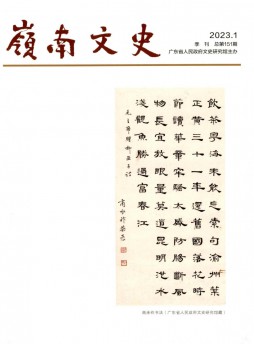 嶺南文史
2023.1
季 刊 总第151期
广东省人民政府文史研究馆主办
飲茶粵海未能忘索句渝州葉
正黃三十一年還舊國落花時
節讀華章牢騷太盛防腸斷風
物長宜放眼量莫道昆明池水
淺觀魚勝過富春江
商承祚书法（广东省人民政府文史研究馆藏）